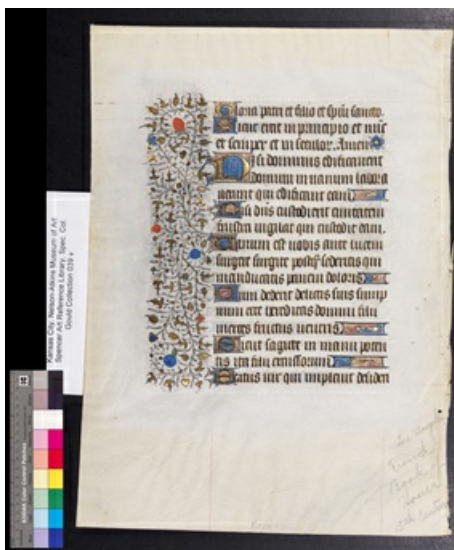 Gloria patri et filio et spui sancto.
Sicut erat in principio et nūc
et semper et in seculor. Amen
Nisi dominus edificaverit
domum in uanum labora
uerunt qui edificant eam
Nisi dñs custodierit ciuitatem
frustra uigilat qui custodit eam.
Uanum est uobis ante lucem
surgere surgite postq̄ sederitis qui
manducatis panem doloris
Cum dederit delictis suis somp
num ecce hereditas domini filii
merces fructus uentris
Sicut sagitte in manu poten
tis ita filii excussorum
Beatus uir qui impleuit desiden
Kansas City, Nelson-Atkins Museum of Art
Spencer Art Reference Library, Spec. Col.
Gould Collection 039 v
KODAK Color Control Patches
French
Book of
Hours
15th Century